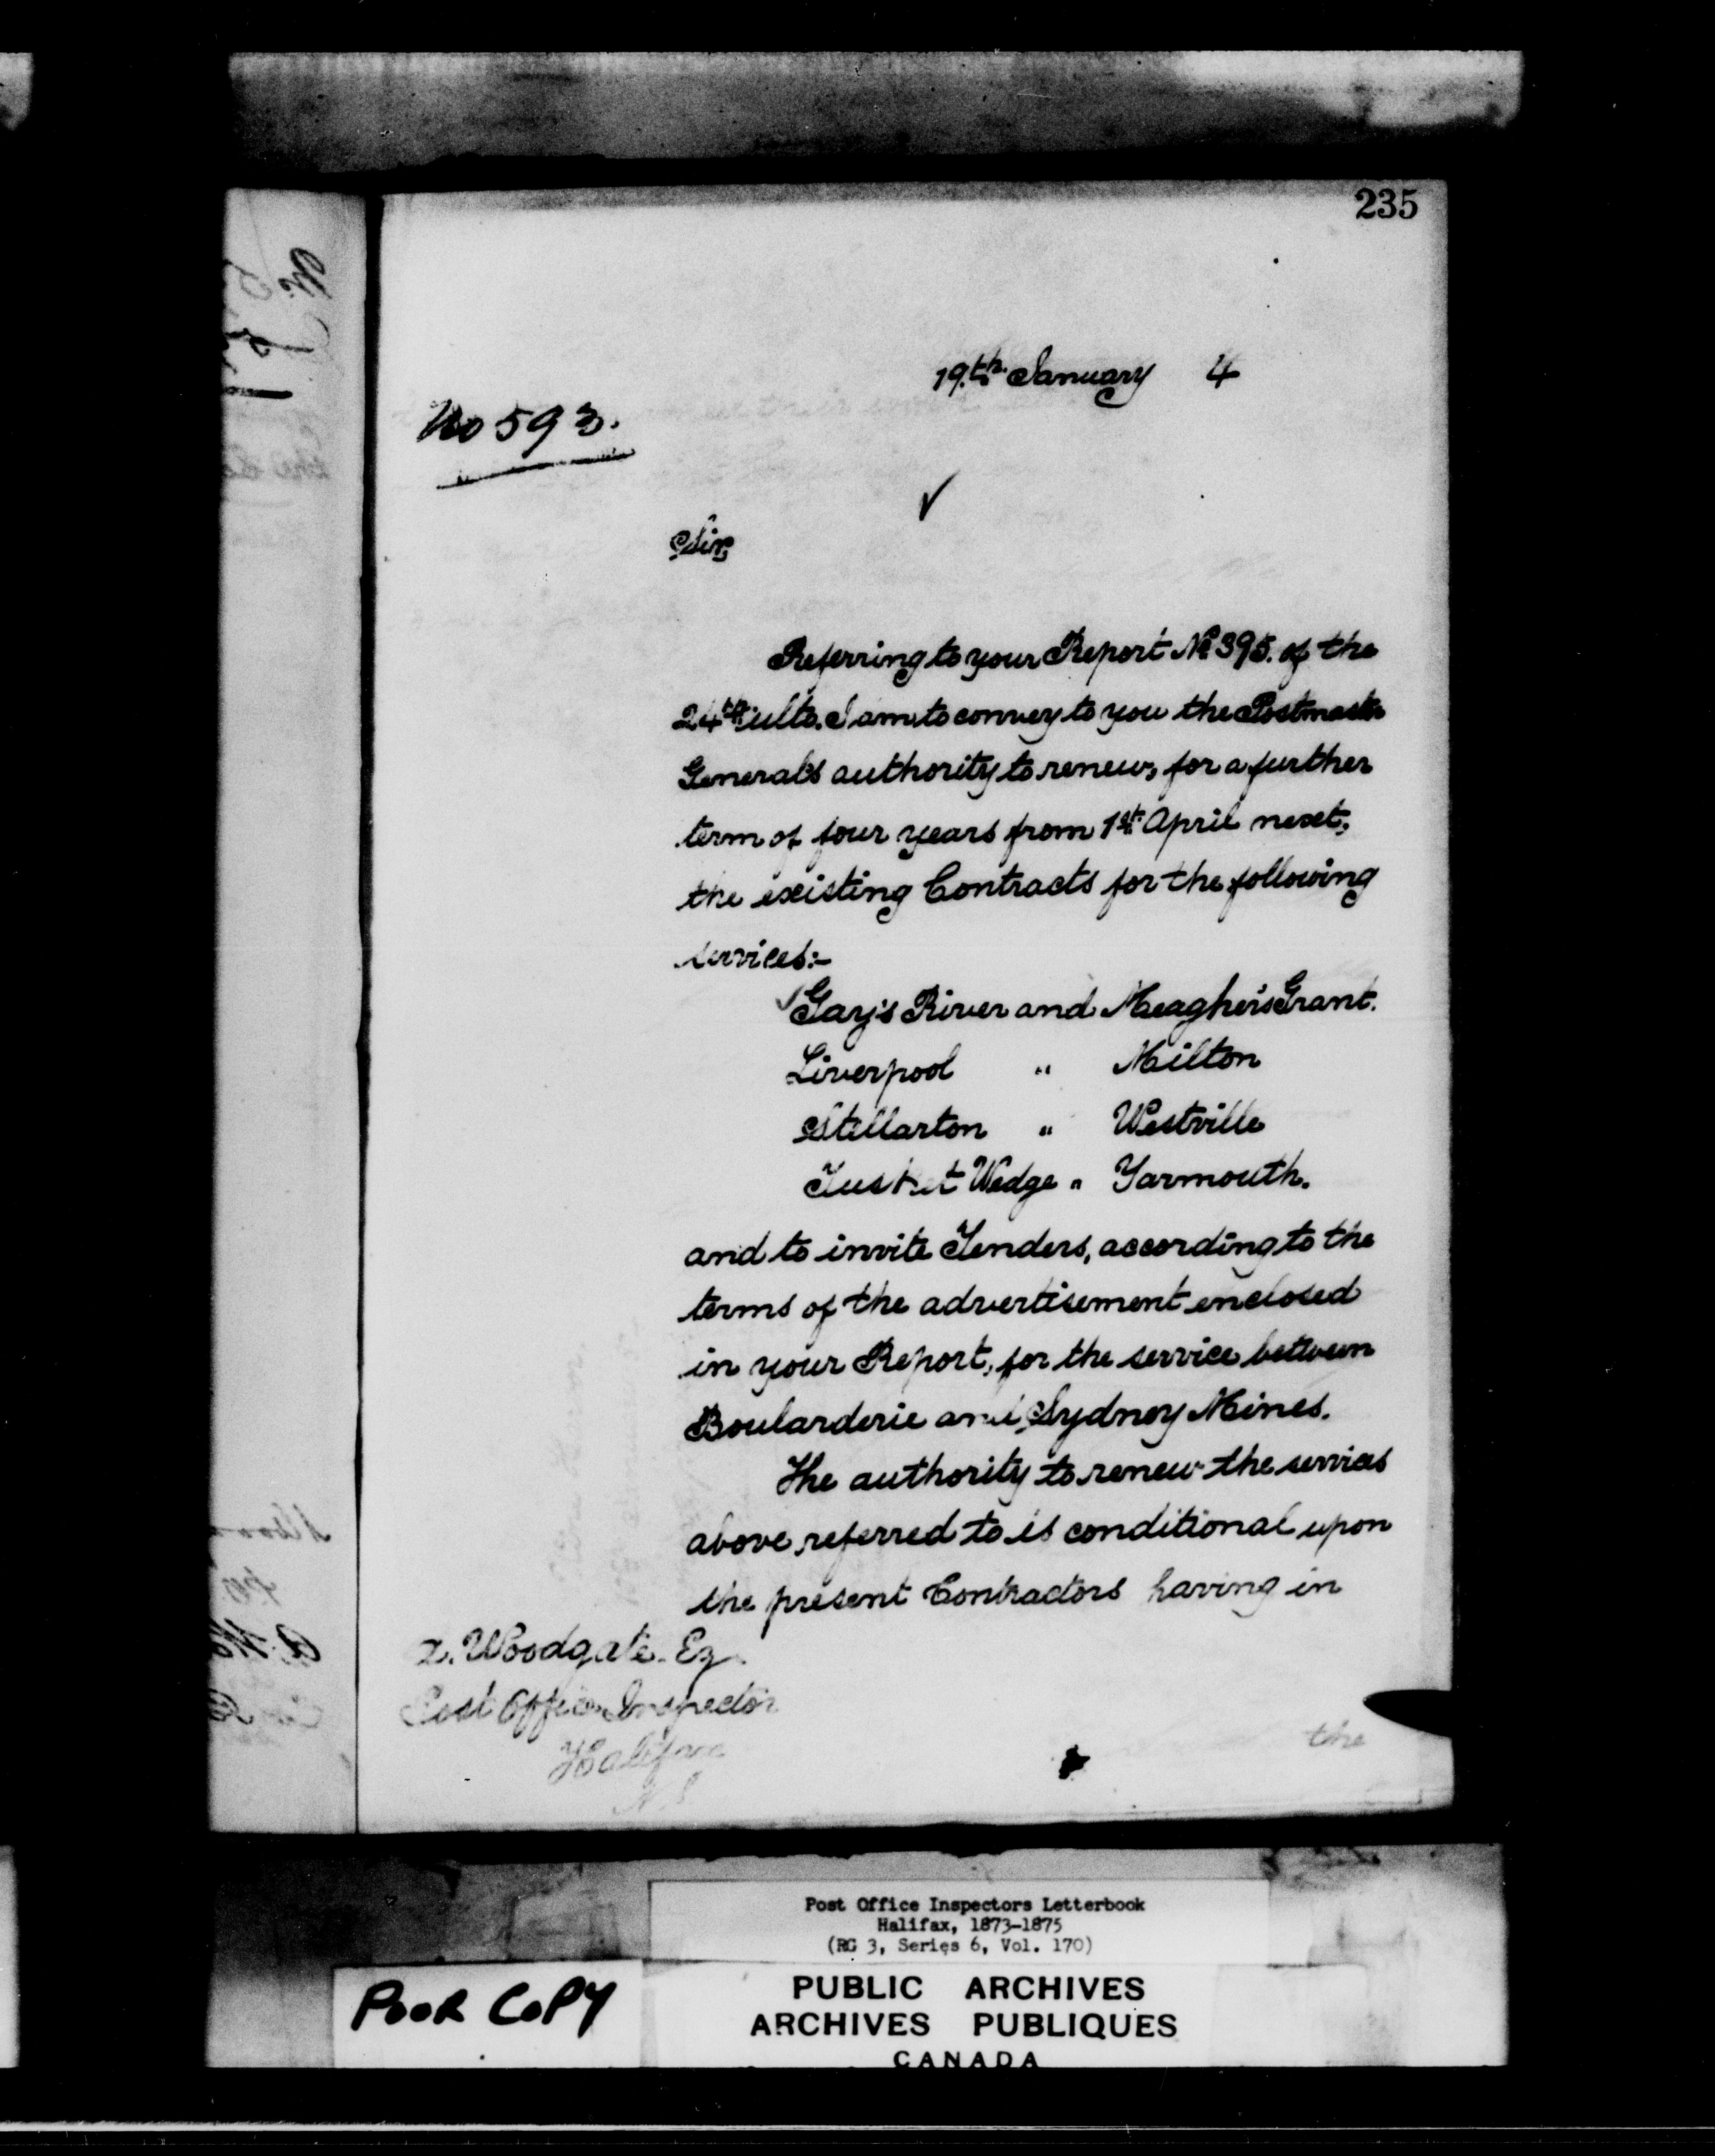 235
19th. January 4
No 593.
Sir,
Referring to your Report No 395. of the
24th ulto. I am to convey to you the Postmaster
General's authority to renew, for a further
term of four years from 1st April next,
the existing Contracts for the following
services:-
Gay's River and Meagher's Grant.
Liverpool " Milton
Stellarton " Westville
Tusket Wedge " Yarmouth.
and to invite Tenders, according to the
terms of the advertisement enclosed
in your Report, for the service between
Boularderie and Sydney Mines.
The authority to renew the services
above referred to is conditional upon
the present Contractors having in
A. Woodgate Eq
Post Office Inspector
Halifax
N.S
the
Post Office Inspectors Letterbook
Halifax, 1873-1875
(RG 3, Series 6, Vol. 170)
POOR COPY
PUBLIC ARCHIVES
ARCHIVES PUBLIQUES
CANADA